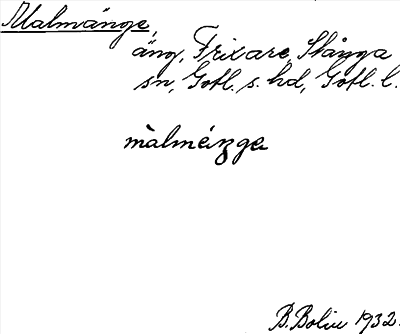 Malmänge,
äng, Frixare, Stånga
sn, Gotl. s. hd, Gotl. l.
màlméŋge
B. Bolin 1932.